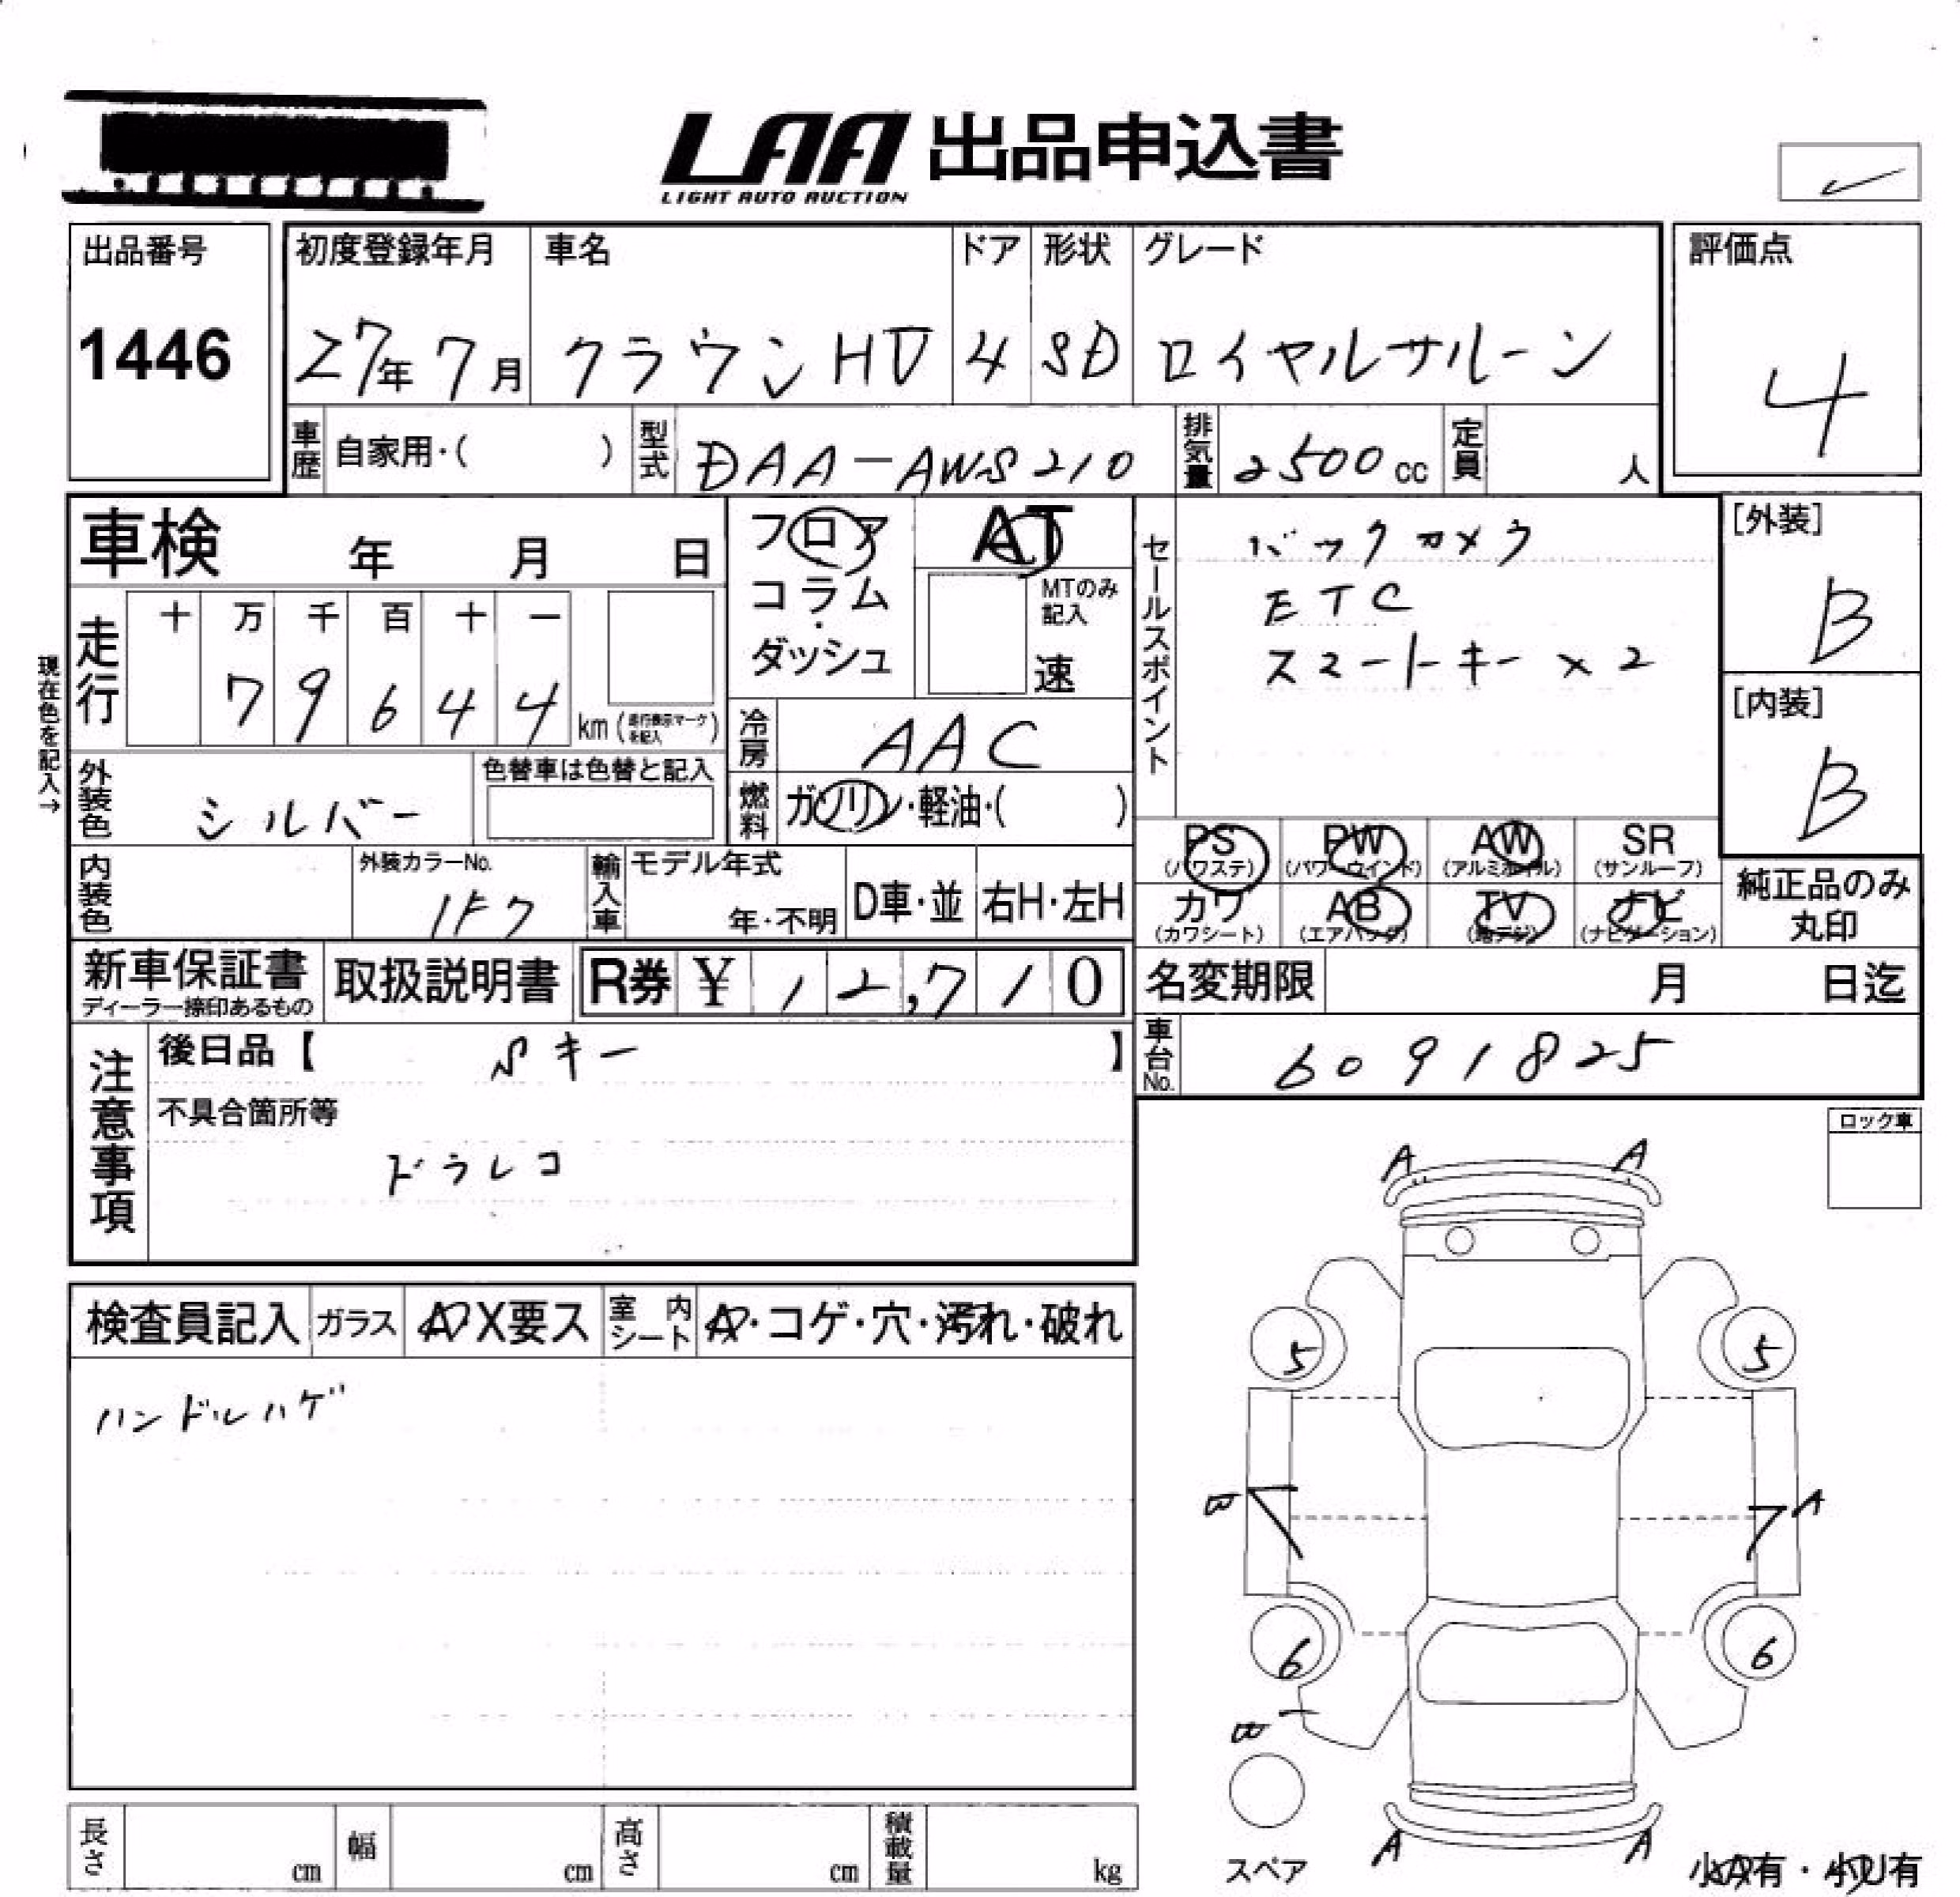 LAA 出品申込書
LIGHT AUTO AUCTION
出品番号
1446
初度登録年月
27年 7月
車名
クラウンHV
ドア
4
形状
SD
グレード
ロイヤルサルーン
評価点
4
車歴 自家用・( )
型式 DAA-AWS210
排気量 2500cc
定員 人
車検 年 月 日
フロア
コラム
・
ダッシュ
AT
MTのみ
記入
速
セールスポイント
バックカメラ
ETC
スマートキー×2
[外装]
B
[内装]
B
現在色を記入→
走行
十 万 千 百 十 一
7 9 6 4 4
km (走行表示マークを記入)
冷房 AAC
燃料 ガソリン・軽油・( )
外装色 シルバー
色替車は色替と記入
内装色
外装カラーNo.
1F7
輸入車
モデル年式
年・不明
D車・並
右H・左H
PS
(パワステ)
PW
(パワーウインド)
AW
(アルミホイル)
SR
(サンルーフ)
カワ
(カワシート)
AB
(エアバッグ)
TV
(地デジ)
ナビ
(ナビゲーション)
純正品のみ
丸印
新車保証書
ディーラー捺印あるもの
取扱説明書
R券 ¥ 12,710
名変期限 月 日迄
車台No. 6091825
注意事項
後日品【 Sキー 】
不具合箇所等
ドラレコ
ロック車
検査員記入
ガラス
A X要ス
室内シート
A・コゲ・穴・汚れ・破れ
ハンドルハゲ
A A
5 5
A
6 6
A A
スペア
小A有・小U有
長さ cm
幅 cm
高さ cm
積載量 kg